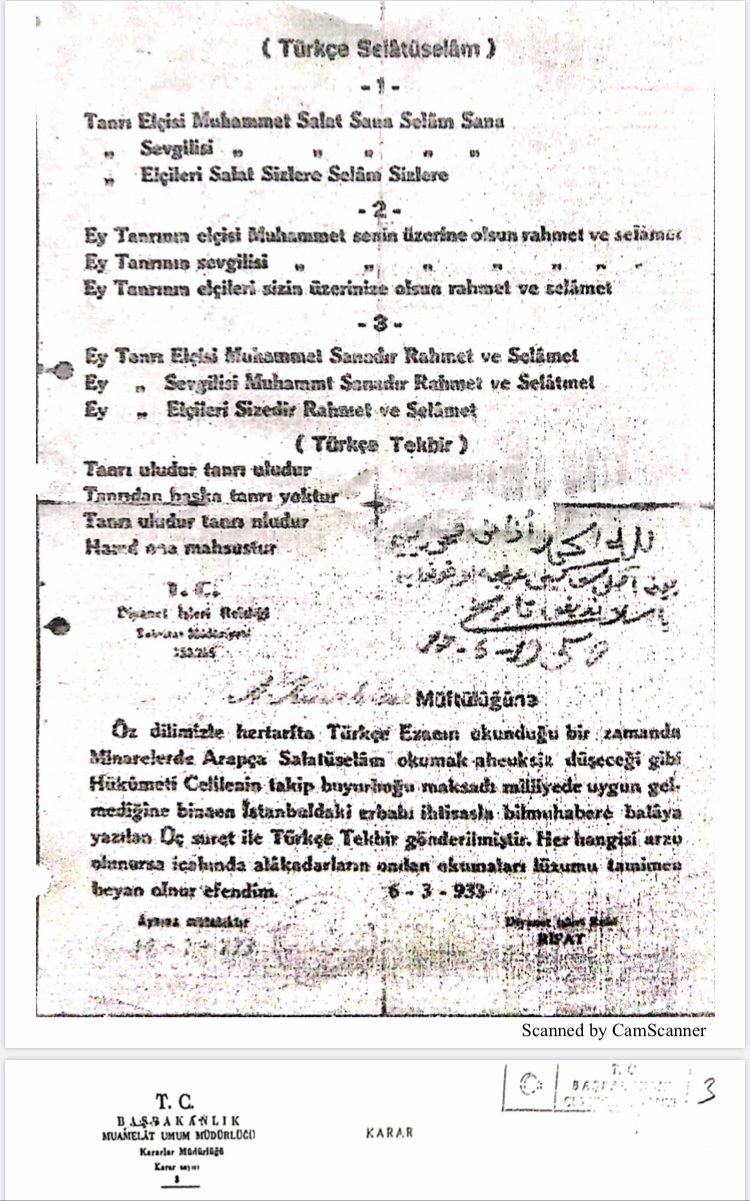 ( Türkçe Selâtüselâm )
- 1 -
Tanrı Elçisi Muhammet Salat Sana Selâm Sana
„ Sevgilisi „ „ „ „ „
„ Elçileri Salat Sizlere Selâm Sizlere
- 2 -
Ey Tanrının elçisi Muhammet senin üzerine olsun rahmet ve selâmet
Ey Tanrının sevgilisi „ „ „ „ „ „ „
Ey Tanrının elçileri sizin üzerinize olsun rahmet ve selâmet
- 3 -
Ey Tanrı Elçisi Muhammet Sanadır Rahmet ve Selâmet
Ey „ Sevgilisi Muhammt Sanadır Rahmet ve Selâtmet
Ey „ Elçileri Sizedir Rahmet ve Selâmet
( Türkçe Tekbir )
Tanrı uludur tanrı uludur
Tanrıdan başka tanrı yoktur
Tanrı uludur tanrı uludur
Hamd ona mahsustur
T. C.
Diyanet İşleri Reisliği
17-6-1950
Müftülüğüne
Öz dilimizle hertarfta Türkçe Ezanın okunduğu bir zamanda
Minarelerde Arapça Salatüselâm okumak aheuksiz düşeceği gibi
Hükûmeti Celilenin takip buyurduğu maksadı milliyede uygun gel-
mediğine binaen İstanbuldaki erbabı ihtisasla bilmuhabere balâya
yazılan Üç suret ile Türkçe Tekbir gönderilmiştir. Her hangisi arzu
olunursa icabında alâkadarların ondan okumaları lüzumu tamimen
beyan olnur efendim. 6 - 3 - 933
Aynına mutabıktır
Diyanet İşleri Reisi
RİFAT
Scanned by CamScanner
T. C.
BAŞBAKANLIK
MUAMELÂT UMUM MÜDÜRLÜĞÜ
Kararlar Müdürlüğü
Karar sayısı
3
KARAR
T. C.
3